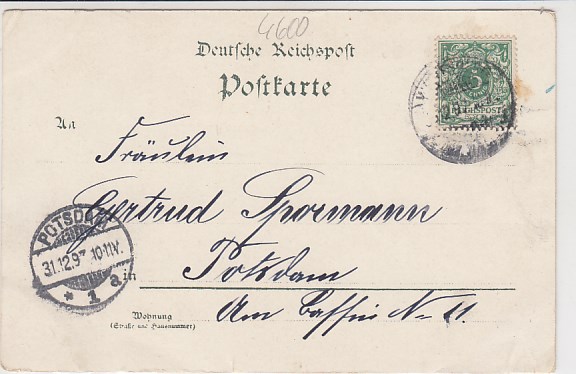 4600
Deutsche Reichspost
Postkarte
An
Fräulein
Gertrud Spormann
in Potsdam
Am Bassin No 11.
Wohnung
(Straße und Hausnummer)
POTSDAM
31.12.97. 10-11V.
* 1 a
5
REICHSPOST